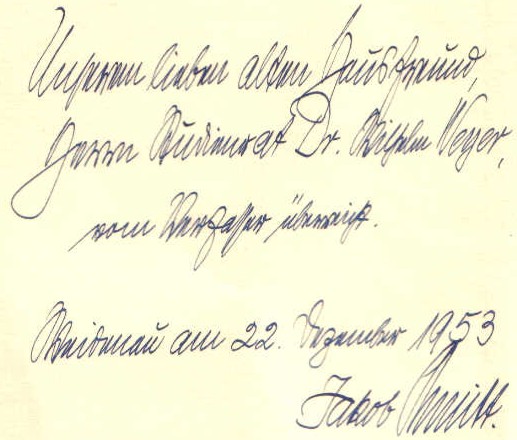 Unserem lieben alten Hausfreund,
Herrn Studienrat Dr. Wilhelm Weyer,
vom Verfasser überreicht.
Weidenau am 22. Dezember 1953
Jakob Schmitt.